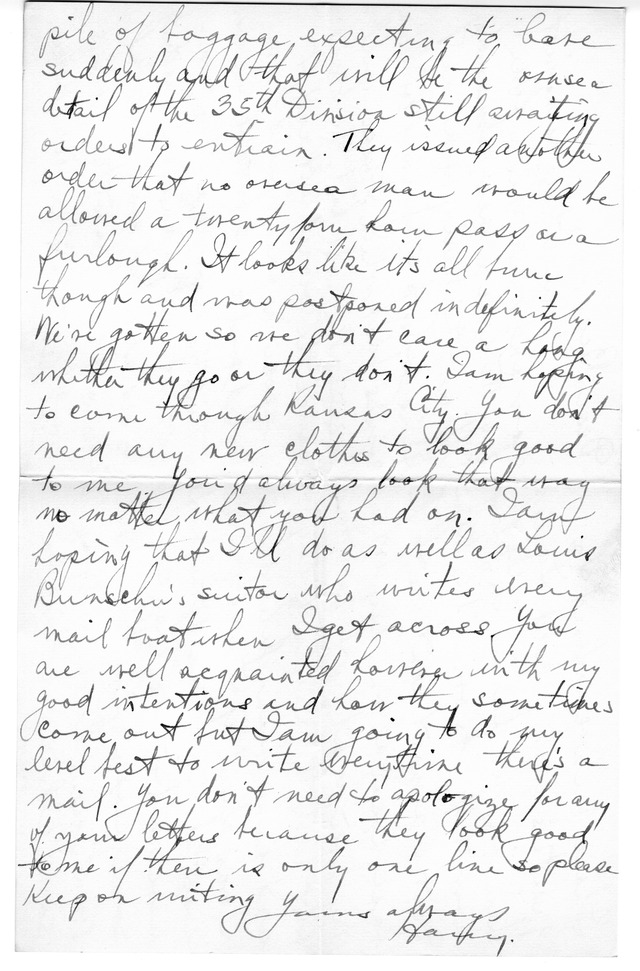 pile of baggage expecting to leave
suddenly and that will be the oversea
detail of the 35th Division still awaiting
orders to entrain. They issued another
order that no oversea man would be
allowed a twentyfour hour pass or a
furlough. It looks like its all
though and was postponed indefinitely.
We've gotten so we don't care a hang
whether they go or they don't. I am hoping
to come through Kansas City. You don't
need any new clothes to look good
to me. You'd always look that way
no matter what you had on. I am
hoping that I'll do as well as Louis
suitor who writes every
mail boat when I get across. You
are well acquainted however with my
good intentions and how they sometimes
come out but I am going to do my
level best to write everytime there's a
mail. You don't need to apologize for any
of your letters because they look good
to me if there is only one line so please
Keep on writing Yours always
Harry.